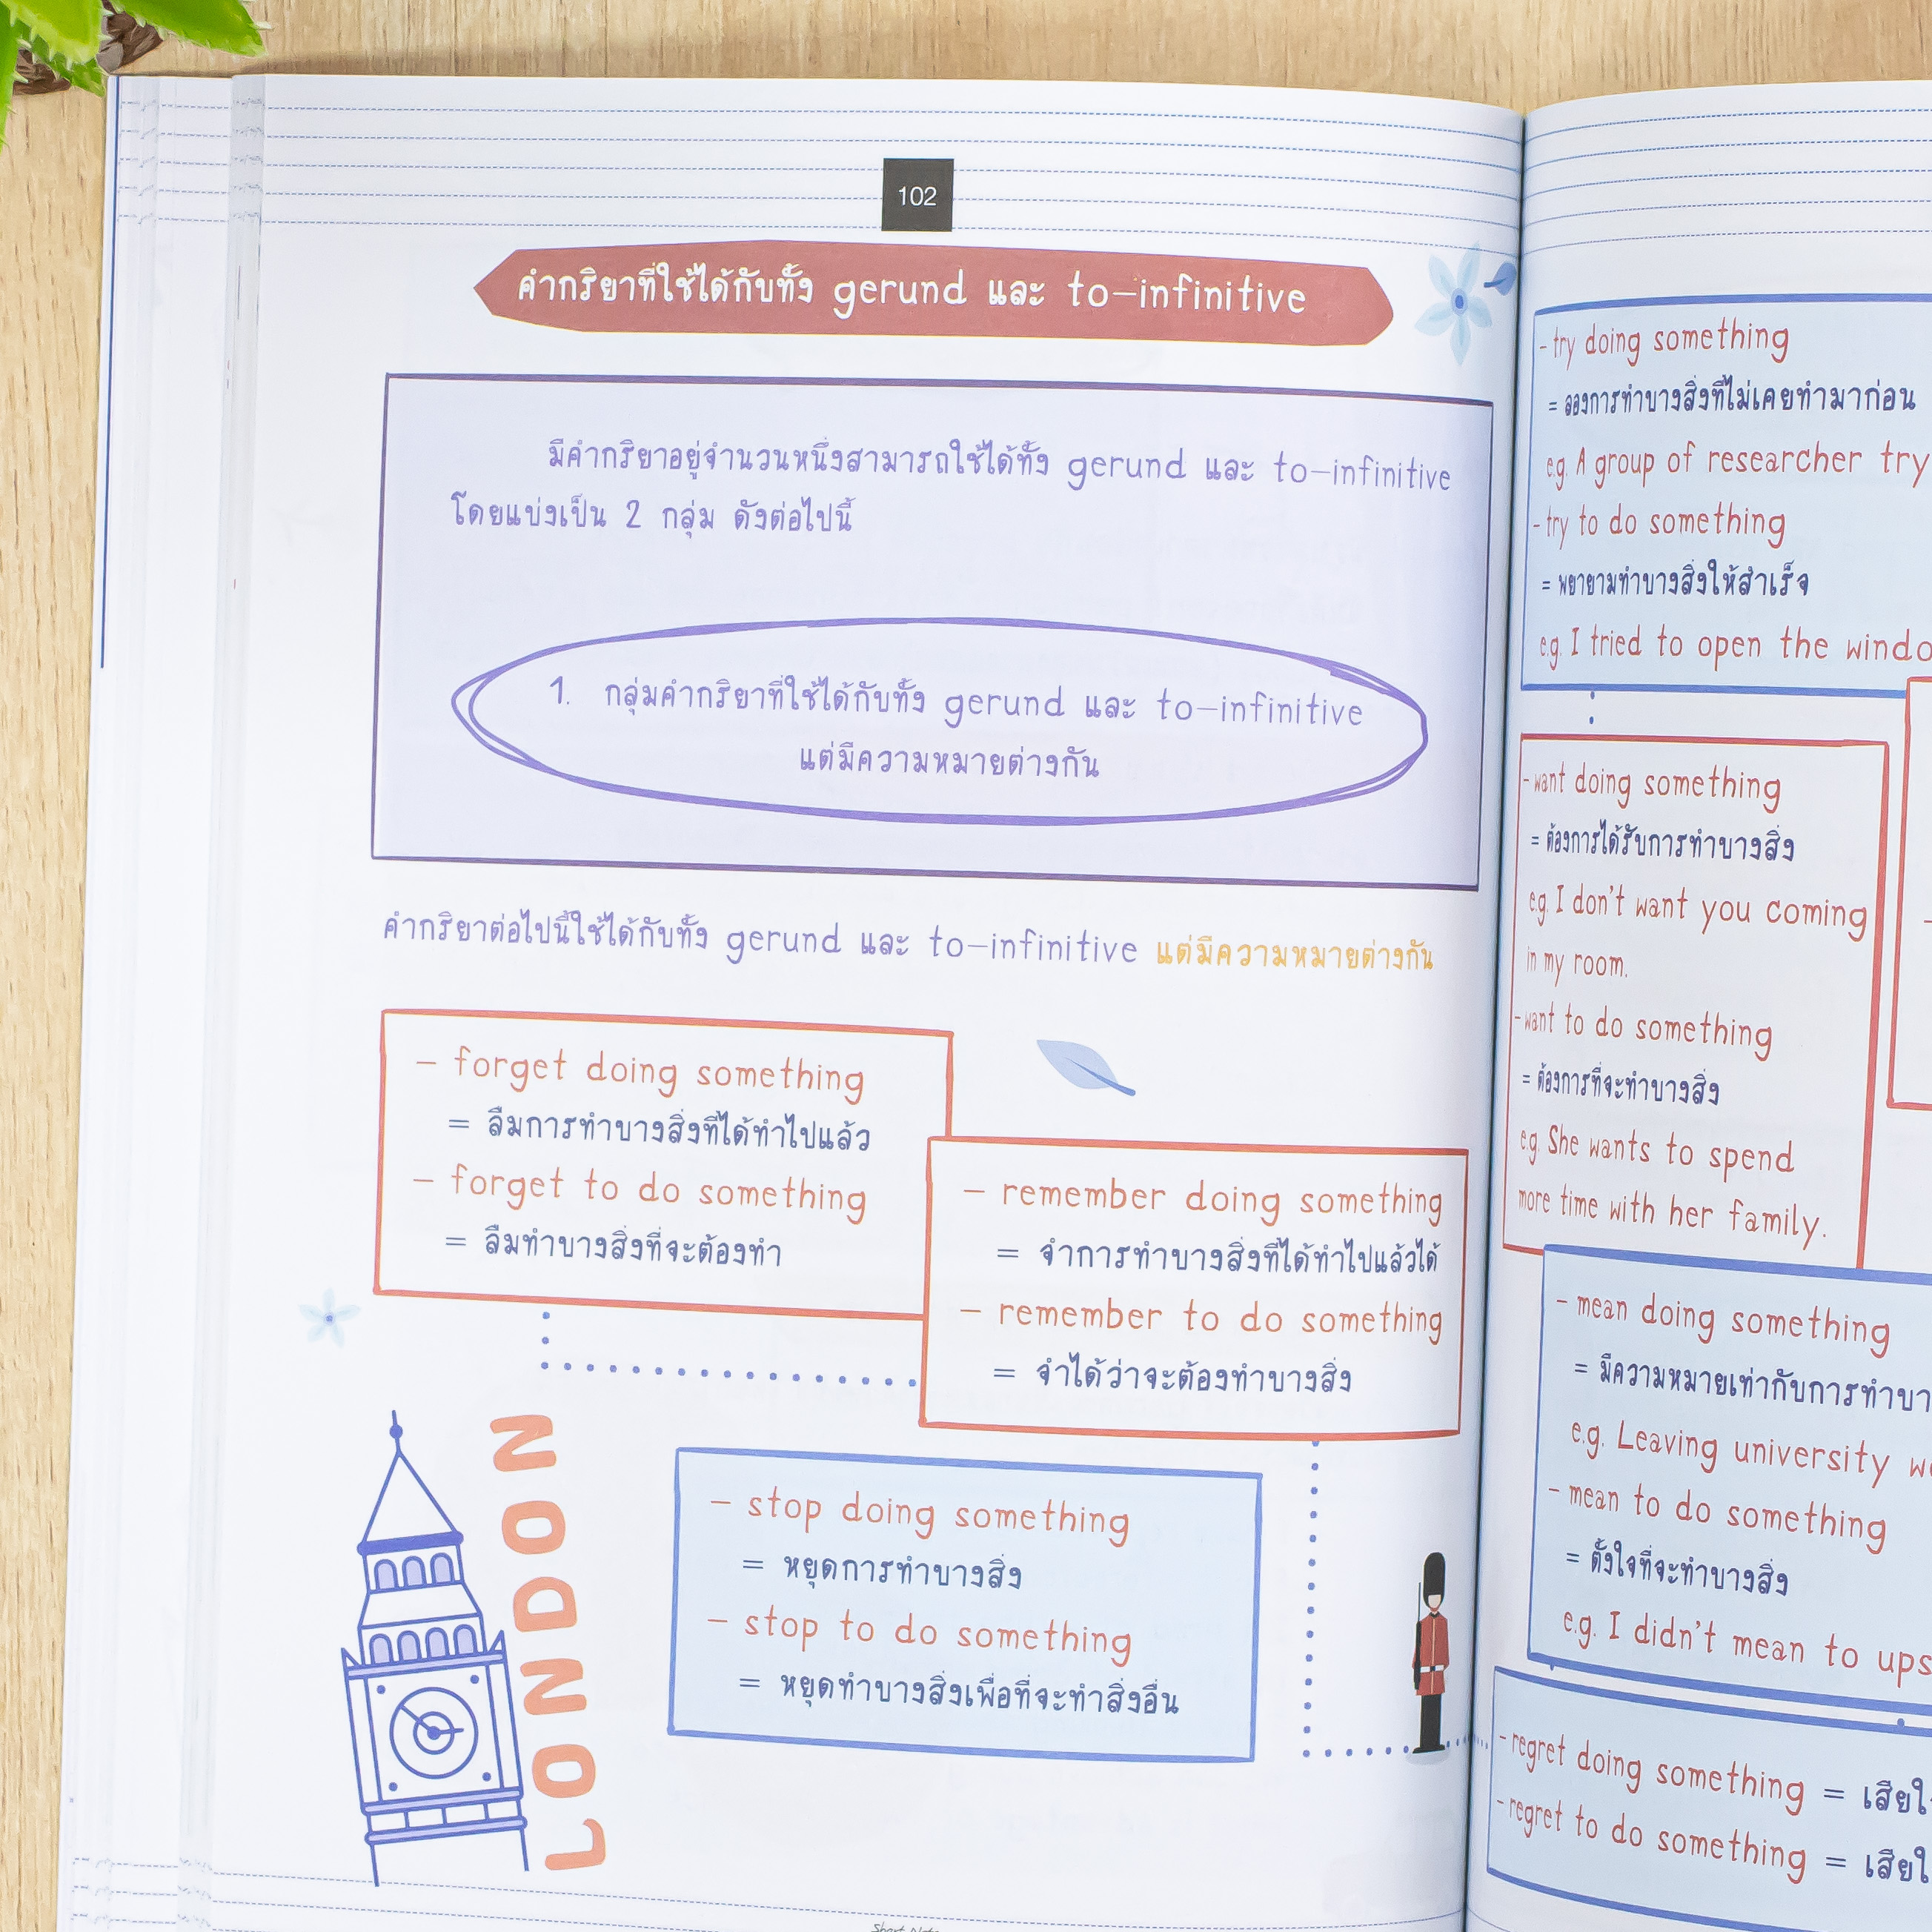 102
คำกริยาที่ใช้ได้กับทั้ง gerund และ to-infinitive
มีคำกริยาอยู่จำนวนหนึ่งสามารถใช้ได้ทั้ง gerund และ to-infinitive
โดยแบ่งเป็น 2 กลุ่ม ดังต่อไปนี้
1. กลุ่มคำกริยาที่ใช้ได้กับทั้ง gerund และ to-infinitive
แต่มีความหมายต่างกัน
คำกริยาต่อไปนี้ใช้ได้กับทั้ง gerund และ to-infinitive แต่มีความหมายต่างกัน
- forget doing something
= ลืมการทำบางสิ่งที่ได้ทำไปแล้ว
- forget to do something
= ลืมทำบางสิ่งที่จะต้องทำ
- remember doing something
= จำการทำบางสิ่งที่ได้ทำไปแล้วได้
- remember to do something
= จำได้ว่าจะต้องทำบางสิ่ง
- stop doing something
= หยุดการทำบางสิ่ง
- stop to do something
= หยุดทำบางสิ่งเพื่อที่จะทำสิ่งอื่น
LONDON
- try doing something
= ลองการทำบางสิ่งที่ไม่เคยทำมาก่อน
e.g. A group of researcher try
- try to do something
= พยายามทำบางสิ่งให้สำเร็จ
e.g. I tried to open the windo
- want doing something
= ต้องการได้รับการทำบางสิ่ง
e.g. I don't want you coming
in my room.
- want to do something
= ต้องการที่จะทำบางสิ่ง
e.g. She wants to spend
more time with her family.
- mean doing something
= มีความหมายเท่ากับการทำบา
e.g. Leaving university
- mean to do something
= ตั้งใจที่จะทำบางสิ่ง
e.g. I didn't mean to ups
- regret doing something = เสียใ
- regret to do something = เสียใ